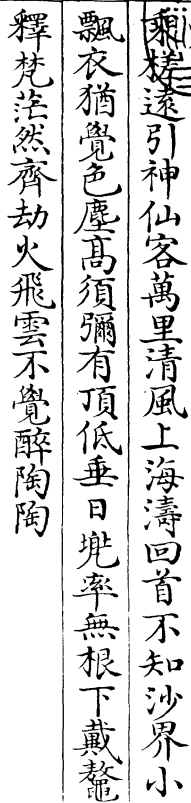 乘槎遠引神仙客萬里清風上海濤回首不知沙界小
飄衣猶覺色塵髙須彌有頂低垂日兠率無根下戴鼇
釋梵茫然齊劫火飛雲不覺醉陶陶